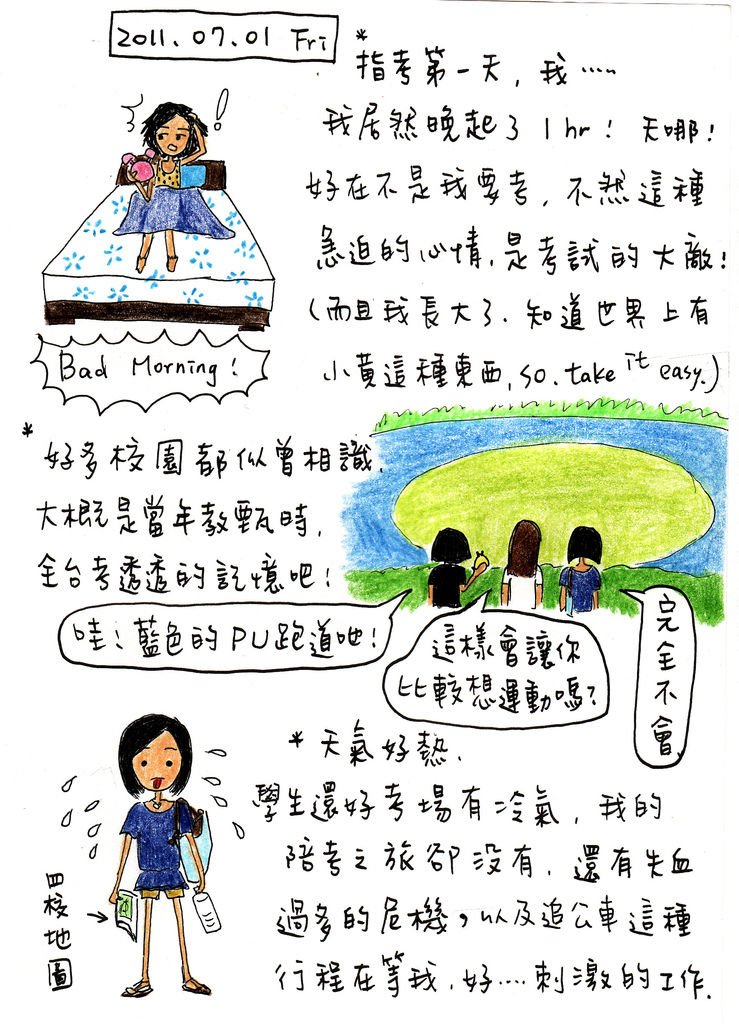 2011.07.01 Fri
*指考第一天，我……
我居然晚起了1hr！天哪！
好在不是我要考，不然這種
急迫的心情，是考試的大敵！
（而且我長大了．知道世界上有
小黃這種東西，so．take it easy．）
Bad Morning！
*好多校園都似曾相識．
大概是當年教甄時，
全台考透透的記憶吧！
哇！藍色的PU跑道吔！
這樣會讓你
比較想運動嗎？
完全不會．
*天氣好熱．
學生還好考場有冷氣，我的
陪考之旅卻沒有．還有失血
過多的危機，以及追公車這種
行程在等我．好……刺激的工作．
四校地圖